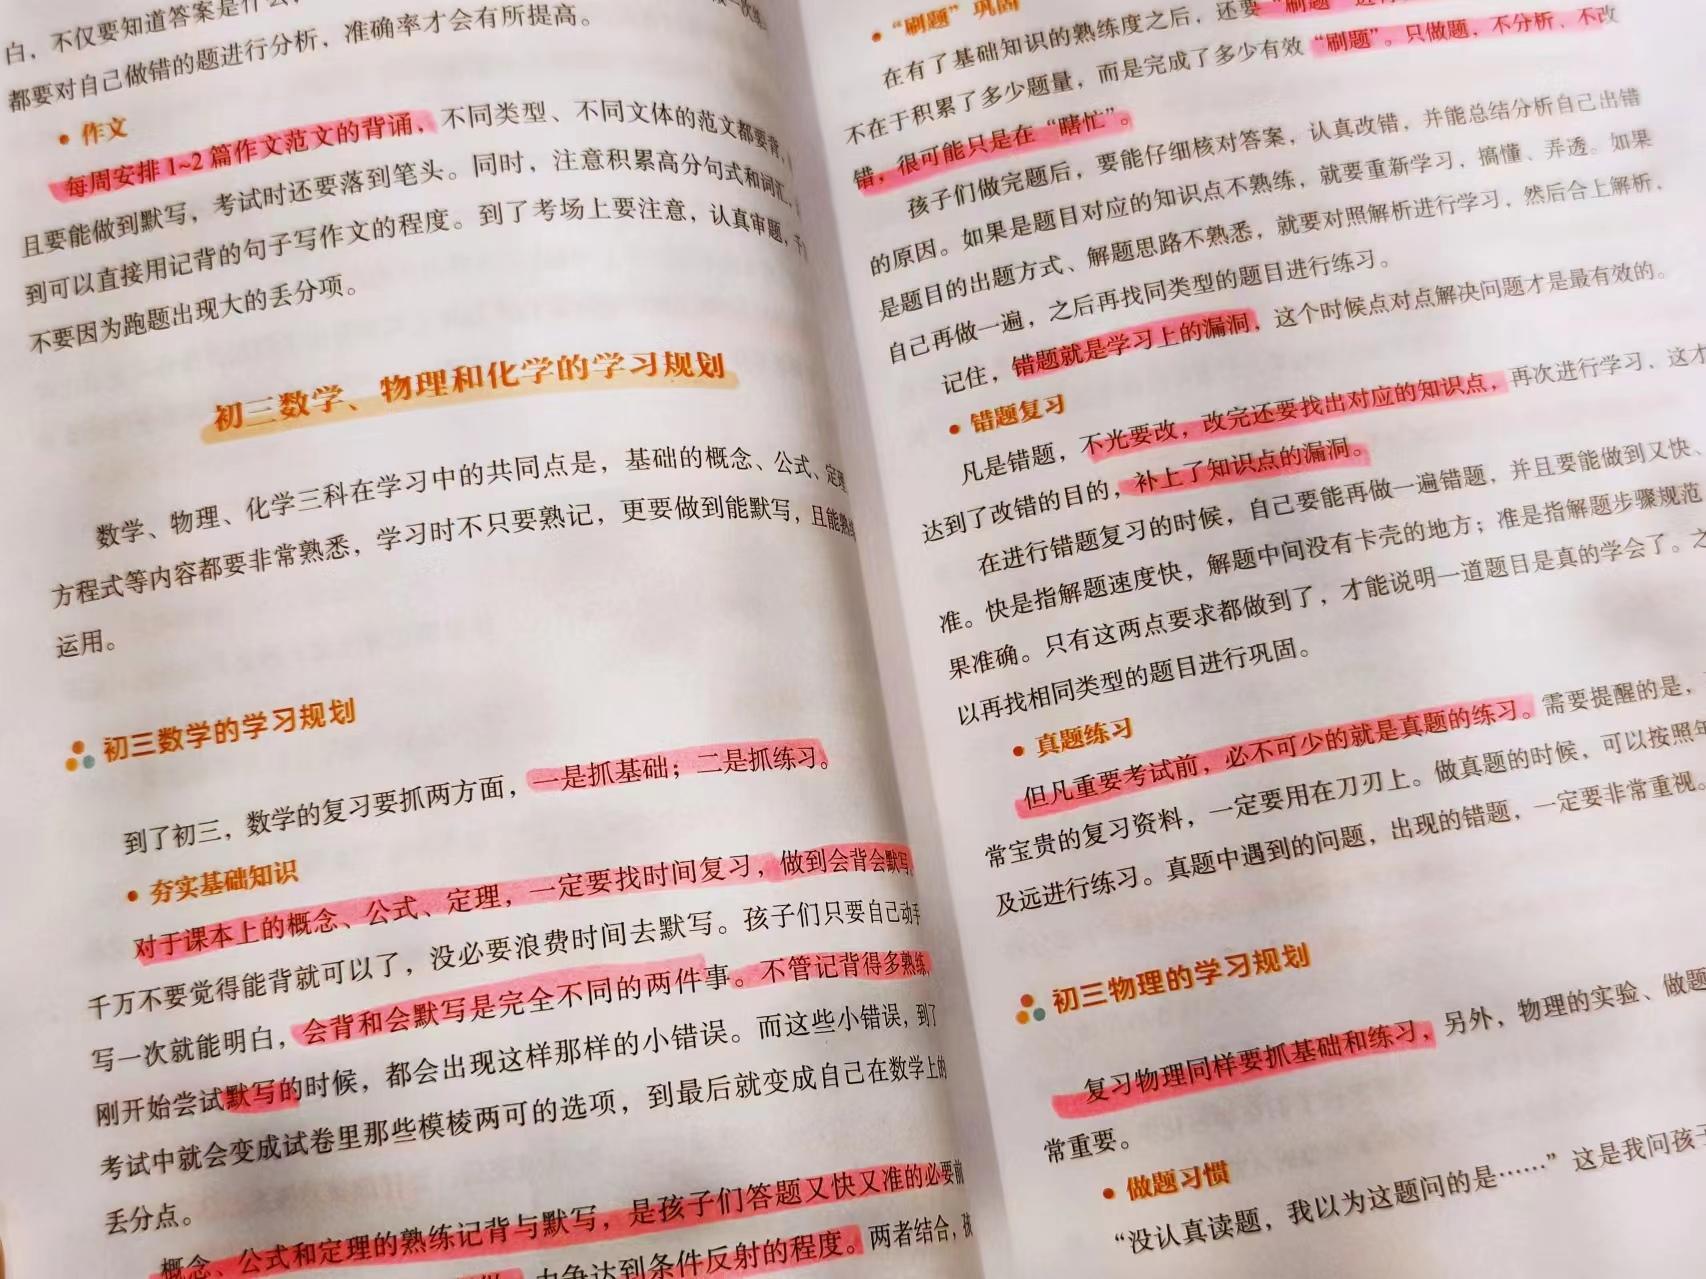 白，不仅要知道答案是什么，
都要对自己做错的题进行分析，准确率才会有所提高。
• 作文
每周安排1~2篇作文范文的背诵，不同类型、不同文体的范文都要背，
且要能做到默写，考试时还要落到笔头。同时，注意积累高分句式和词汇，
到可以直接用记背的句子写作文的程度。到了考场上要注意，认真审题，千
不要因为跑题出现大的丢分项。
初三数学、物理和化学的学习规划
数学、物理、化学三科在学习中的共同点是，基础的概念、公式、定理
方程式等内容都要非常熟悉，学习时不只要熟记，更要做到能默写，且能熟练
运用。
初三数学的学习规划
到了初三，数学的复习要抓两方面，一是抓基础；二是抓练习。
• 夯实基础知识
对于课本上的概念、公式、定理，一定要找时间复习，做到会背会默写，
千万不要觉得能背就可以了，没必要浪费时间去默写。孩子们只要自己动手
写一次就能明白，会背和会默写是完全不同的两件事。不管记背得多熟练，
刚开始尝试默写的时候，都会出现这样那样的小错误。而这些小错误，到了
考试中就会变成试卷里那些模棱两可的选项，到最后就变成自己在数学上的
丢分点。
概念、公式和定理的熟练记背与默写，是孩子们答题又快又准的必要前
力争达到条件反射的程度。两者结合，孩
• “刷题”巩固
在有了基础知识的熟练度之后，还要“刷题”
不在于积累了多少题量，而是完成了多少有效“刷题”。只做题，不分析、不改
错，很可能只是在“瞎忙”。
孩子们做完题后，要能仔细核对答案，认真改错，并能总结分析自己出错
的原因。如果是题目对应的知识点不熟练，就要重新学习，搞懂、弄透。如果
是题目的出题方式、解题思路不熟悉，就要对照解析进行学习，然后合上解析，
自己再做一遍，之后再找同类型的题目进行练习。
记住，错题就是学习上的漏洞，这个时候点对点解决问题才是最有效的。
• 错题复习
凡是错题，不光要改，改完还要找出对应的知识点，再次进行学习，这才
达到了改错的目的，补上了知识点的漏洞。
在进行错题复习的时候，自己要能再做一遍错题，并且要能做到又快、
准。快是指解题速度快，解题中间没有卡壳的地方；准是指解题步骤规范
果准确。只有这两点要求都做到了，才能说明一道题目是真的学会了。之
以再找相同类型的题目进行巩固。
• 真题练习
但凡重要考试前，必不可少的就是真题的练习。需要提醒的是，
常宝贵的复习资料，一定要用在刀刃上。做真题的时候，可以按照年
及远进行练习。真题中遇到的问题，出现的错题，一定要非常重视。
初三物理的学习规划
复习物理同样要抓基础和练习，另外，物理的实验、做题
常重要。
• 做题习惯
“没认真读题，我以为这题问的是……”这是我问孩子